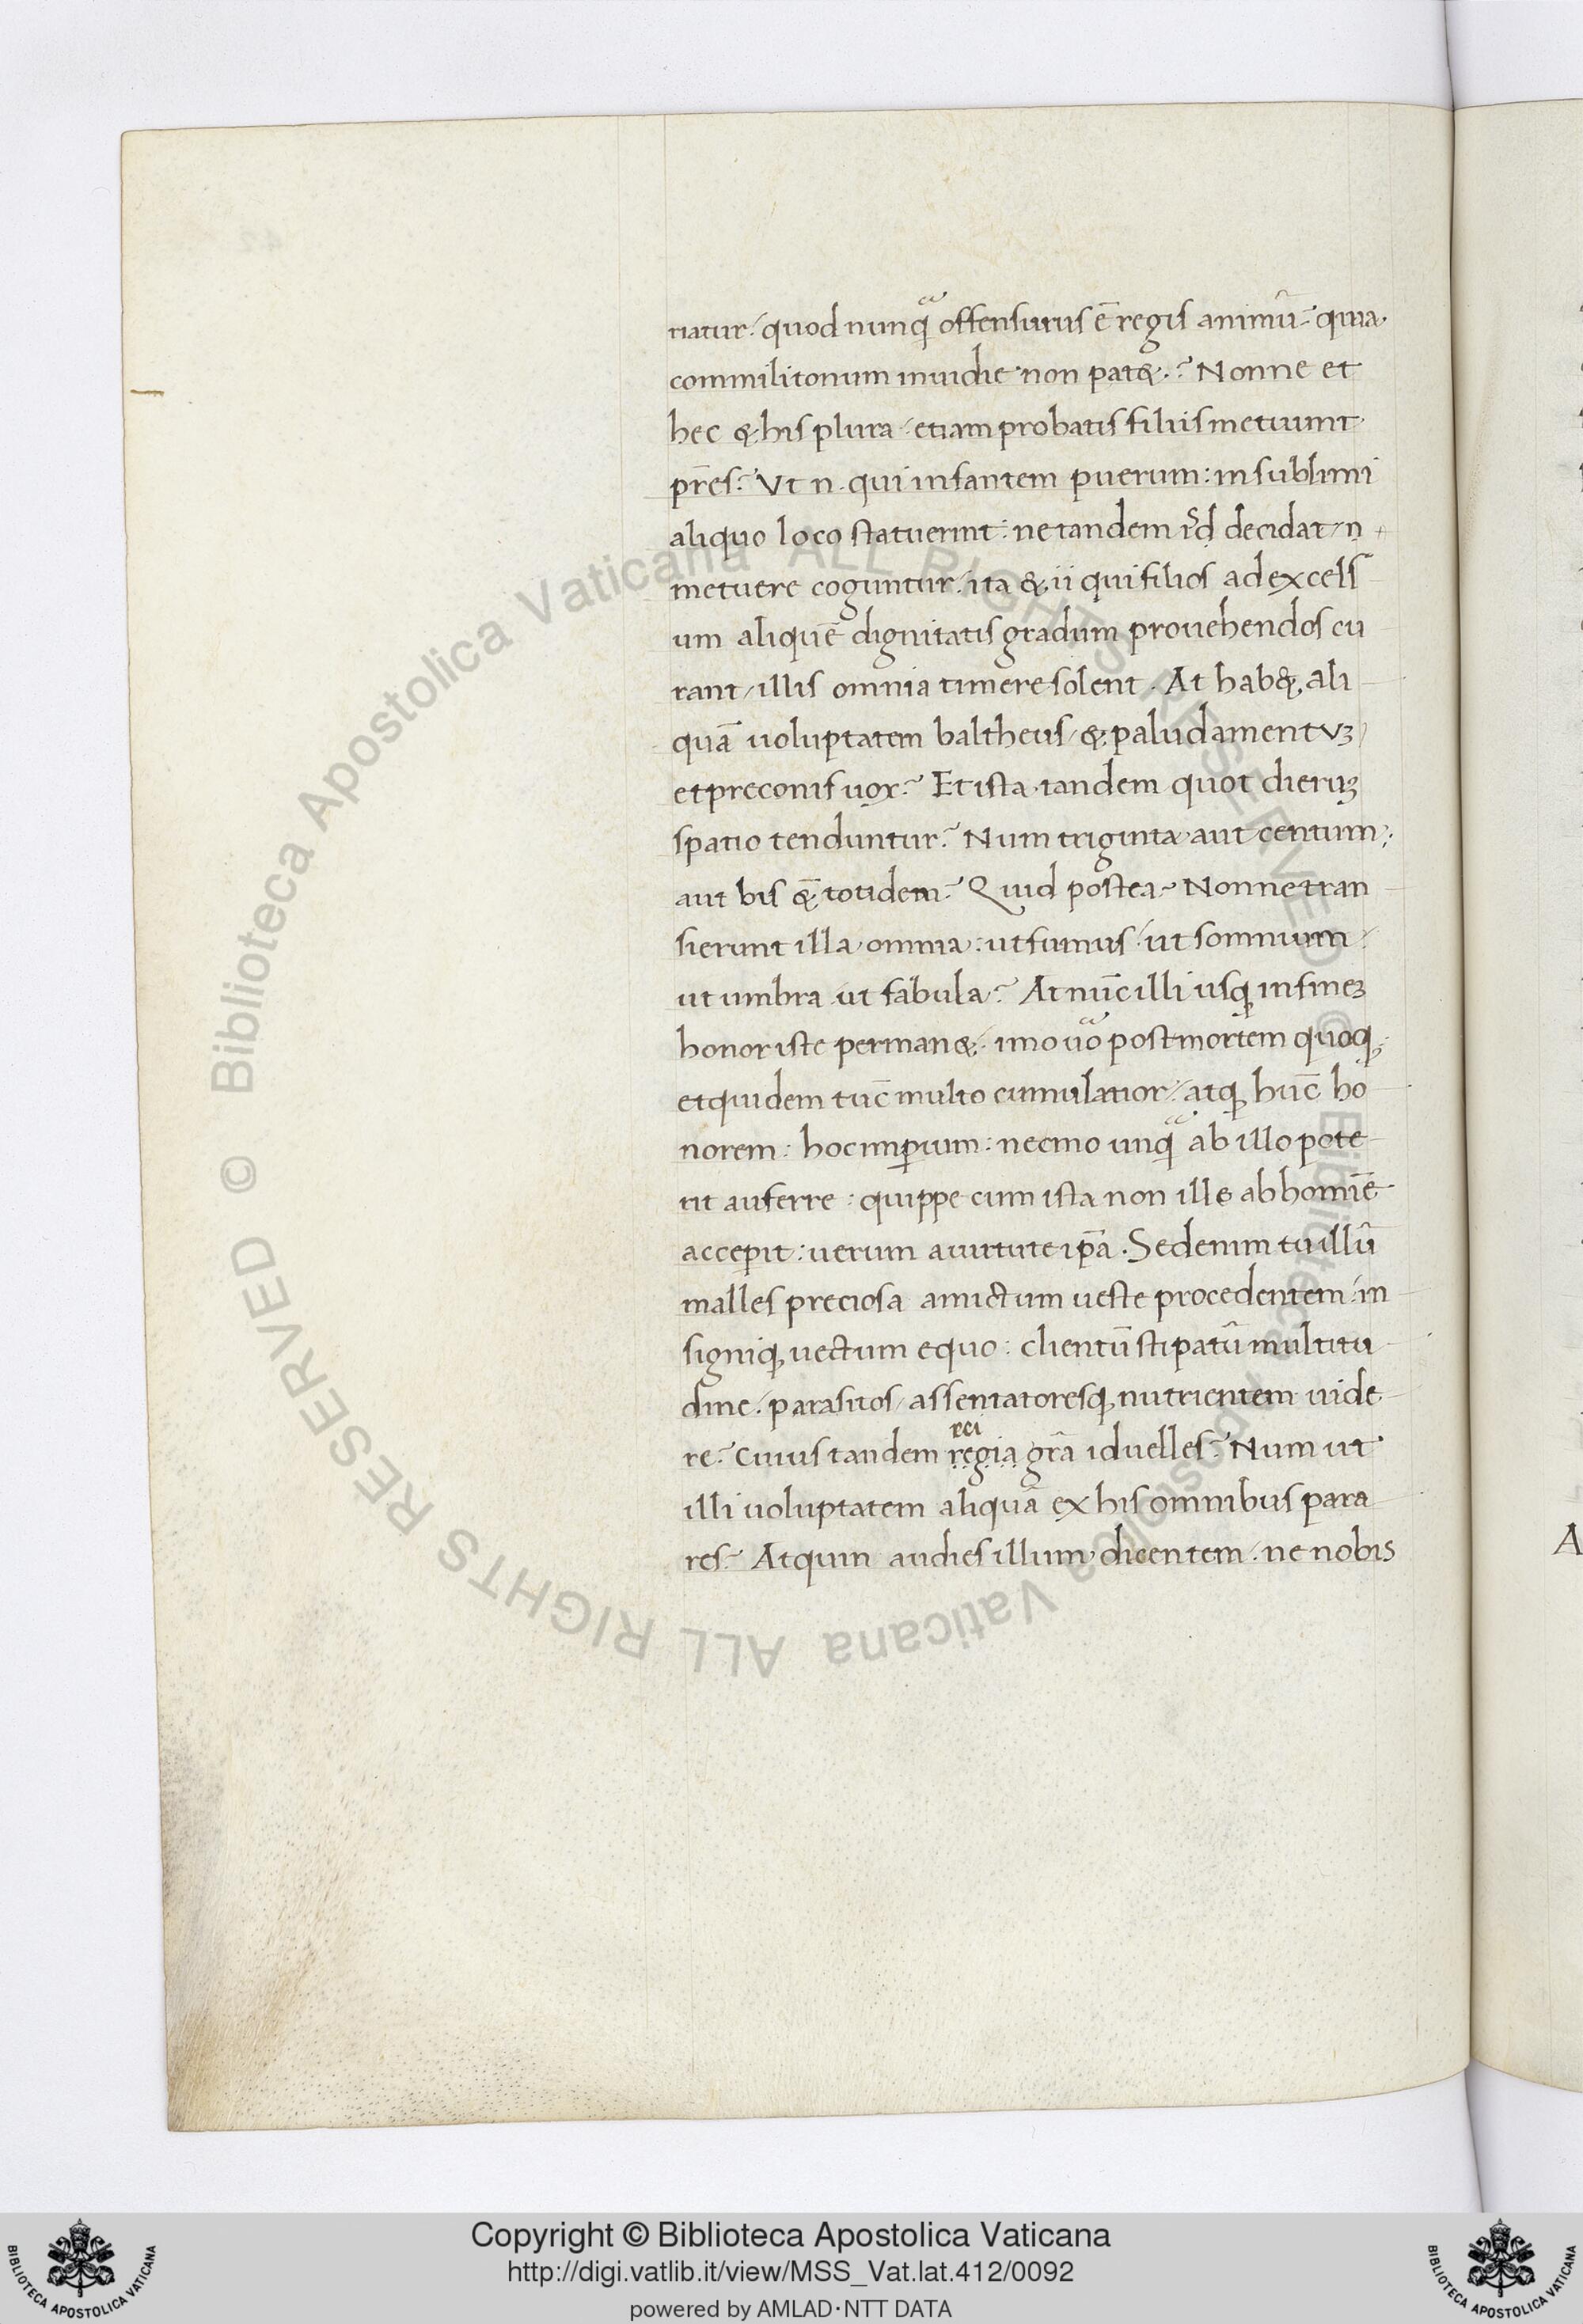 riatur. quod nunq̃ offensurus ẽ regis animũ. quia
commilitonum inuidie non pat&. ? Nonne et
hec & his plura. etiam probatis filiis metuunt
pr̃es? Vt n. qui infantem puerum: in sublimi
aliquo loco statuerint: ne tandem id decidat. n
metuere coguntur. ita & ii qui filios ad excels
um aliquẽ dignitatis gradum prouehendos cu
rant. illis omnia timere solent. At hab& ali
quã uoluptatem baltheus. & paludamentuʒ
et preconis uox? Et ista tandem quot dieruʒ
spatio tenduntur? Num triginta aut centum.
aut bis & totidem? Quid postea? Nonne tran
sierunt illa omnia: ut fumus. ut somnium.
ut umbra. ut fabula? At nũc illi usq; in fineʒ
honor iste perman&. imo uõ post mortem quoq;
et quidem tũc multo cumulatior. atq; hũc ho
norem: hoc imꝑium: neemo unq̃ ab illo pote
rit auferre: quippe cum ista non ille ab homĩe
acceꝑit: uerum a uirtute ip̃a. Sed enim tu illũ
malles preciosa amictum ueste procedentem. in
signiq; uectum equo: clientũ stipatũ multitu
dine. parasitos. assentatoresq; nutrientem uide
re? cuius tandem regia gr̃a id uelles? Num ut
rei
illi uoluptatem aliquã ex his omnibus para
res? Atquin audies illum dicentem. ne nobis
A
© Biblioteca Apostolica Vaticana ALL RIGHTS RESERVED © Biblioteca Apostolica Vaticana ALL RIGHTS RESERVED
Copyright © Biblioteca Apostolica Vaticana
http://digi.vatlib.it/view/MSS_Vat.lat.412/0092
powered by AMLAD·NTT DATA
BIBLIOTECA APOSTOLICA VATICANA
BIBLIOTECA APOSTOLICA VATICANA